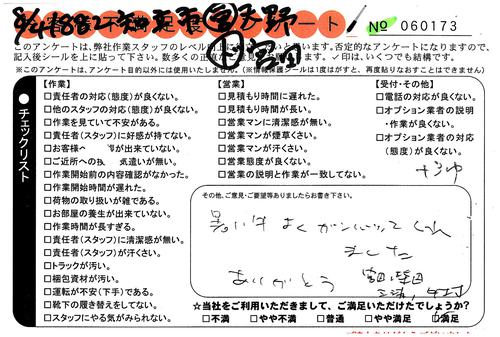 No 060173
このアンケートは、弊社作業スタッフのレベル
います。否定的なアンケートになりますので、
記入後シールを上に貼って下さい。
✓印は、いくつでも結構です。
※このアンケートは、アンケート目的以外には使用いたしません。(※情報保護シールは1度がすと、再度貼りなおすことはできません)
●チェックリスト
【作業】
□責任者の対応(態度)が良くない。
□他のスタッフの対応(態度)が良くない。
□作業を見ていて不安がある。
□責任者(スタッフ)に好感が持てない。
□お客様へ が出来ていない。
□ご近所への 気遣いが無い。
□作業開始前の内容確認がなかった。
□作業開始時間が遅れた。
□荷物の取り扱いが雑である。
□お部屋の養生が出来ていない。
□作業時間が長すぎる。
□責任者(スタッフ)に清潔感が無い。
□責任者(スタッフ)が汗くさい。
□トラックが汚い。
□梱包資材が汚い。
□運転が不安(下手)である。
□靴下の履き替えをしてない。
□スタッフにやる気がみられない。
【営業】
□見積もり時間に遅れた。
□見積もり時間が長い。
□営業マンに清潔感が無い。
□営業マンが煙草くさい。
□営業マンが汗くさい。
□営業態度が良くない。
□営業の説明と作業が一致してない。
【受付・その他】
□電話の対応が良くない。
□オプション業者の説明
・作業が良くない。
□オプション業者の対応
(態度)が良くない。
その他、ご意見・ご要望等ありましたらお書き下さい。
暑い中 よくガンバッてくれ
ました
ありがとう
☆当社をご利用いただきまして、ご満足いただけたでしょうか?
□不満 □やや不満 □普通 □やや満足 □満足